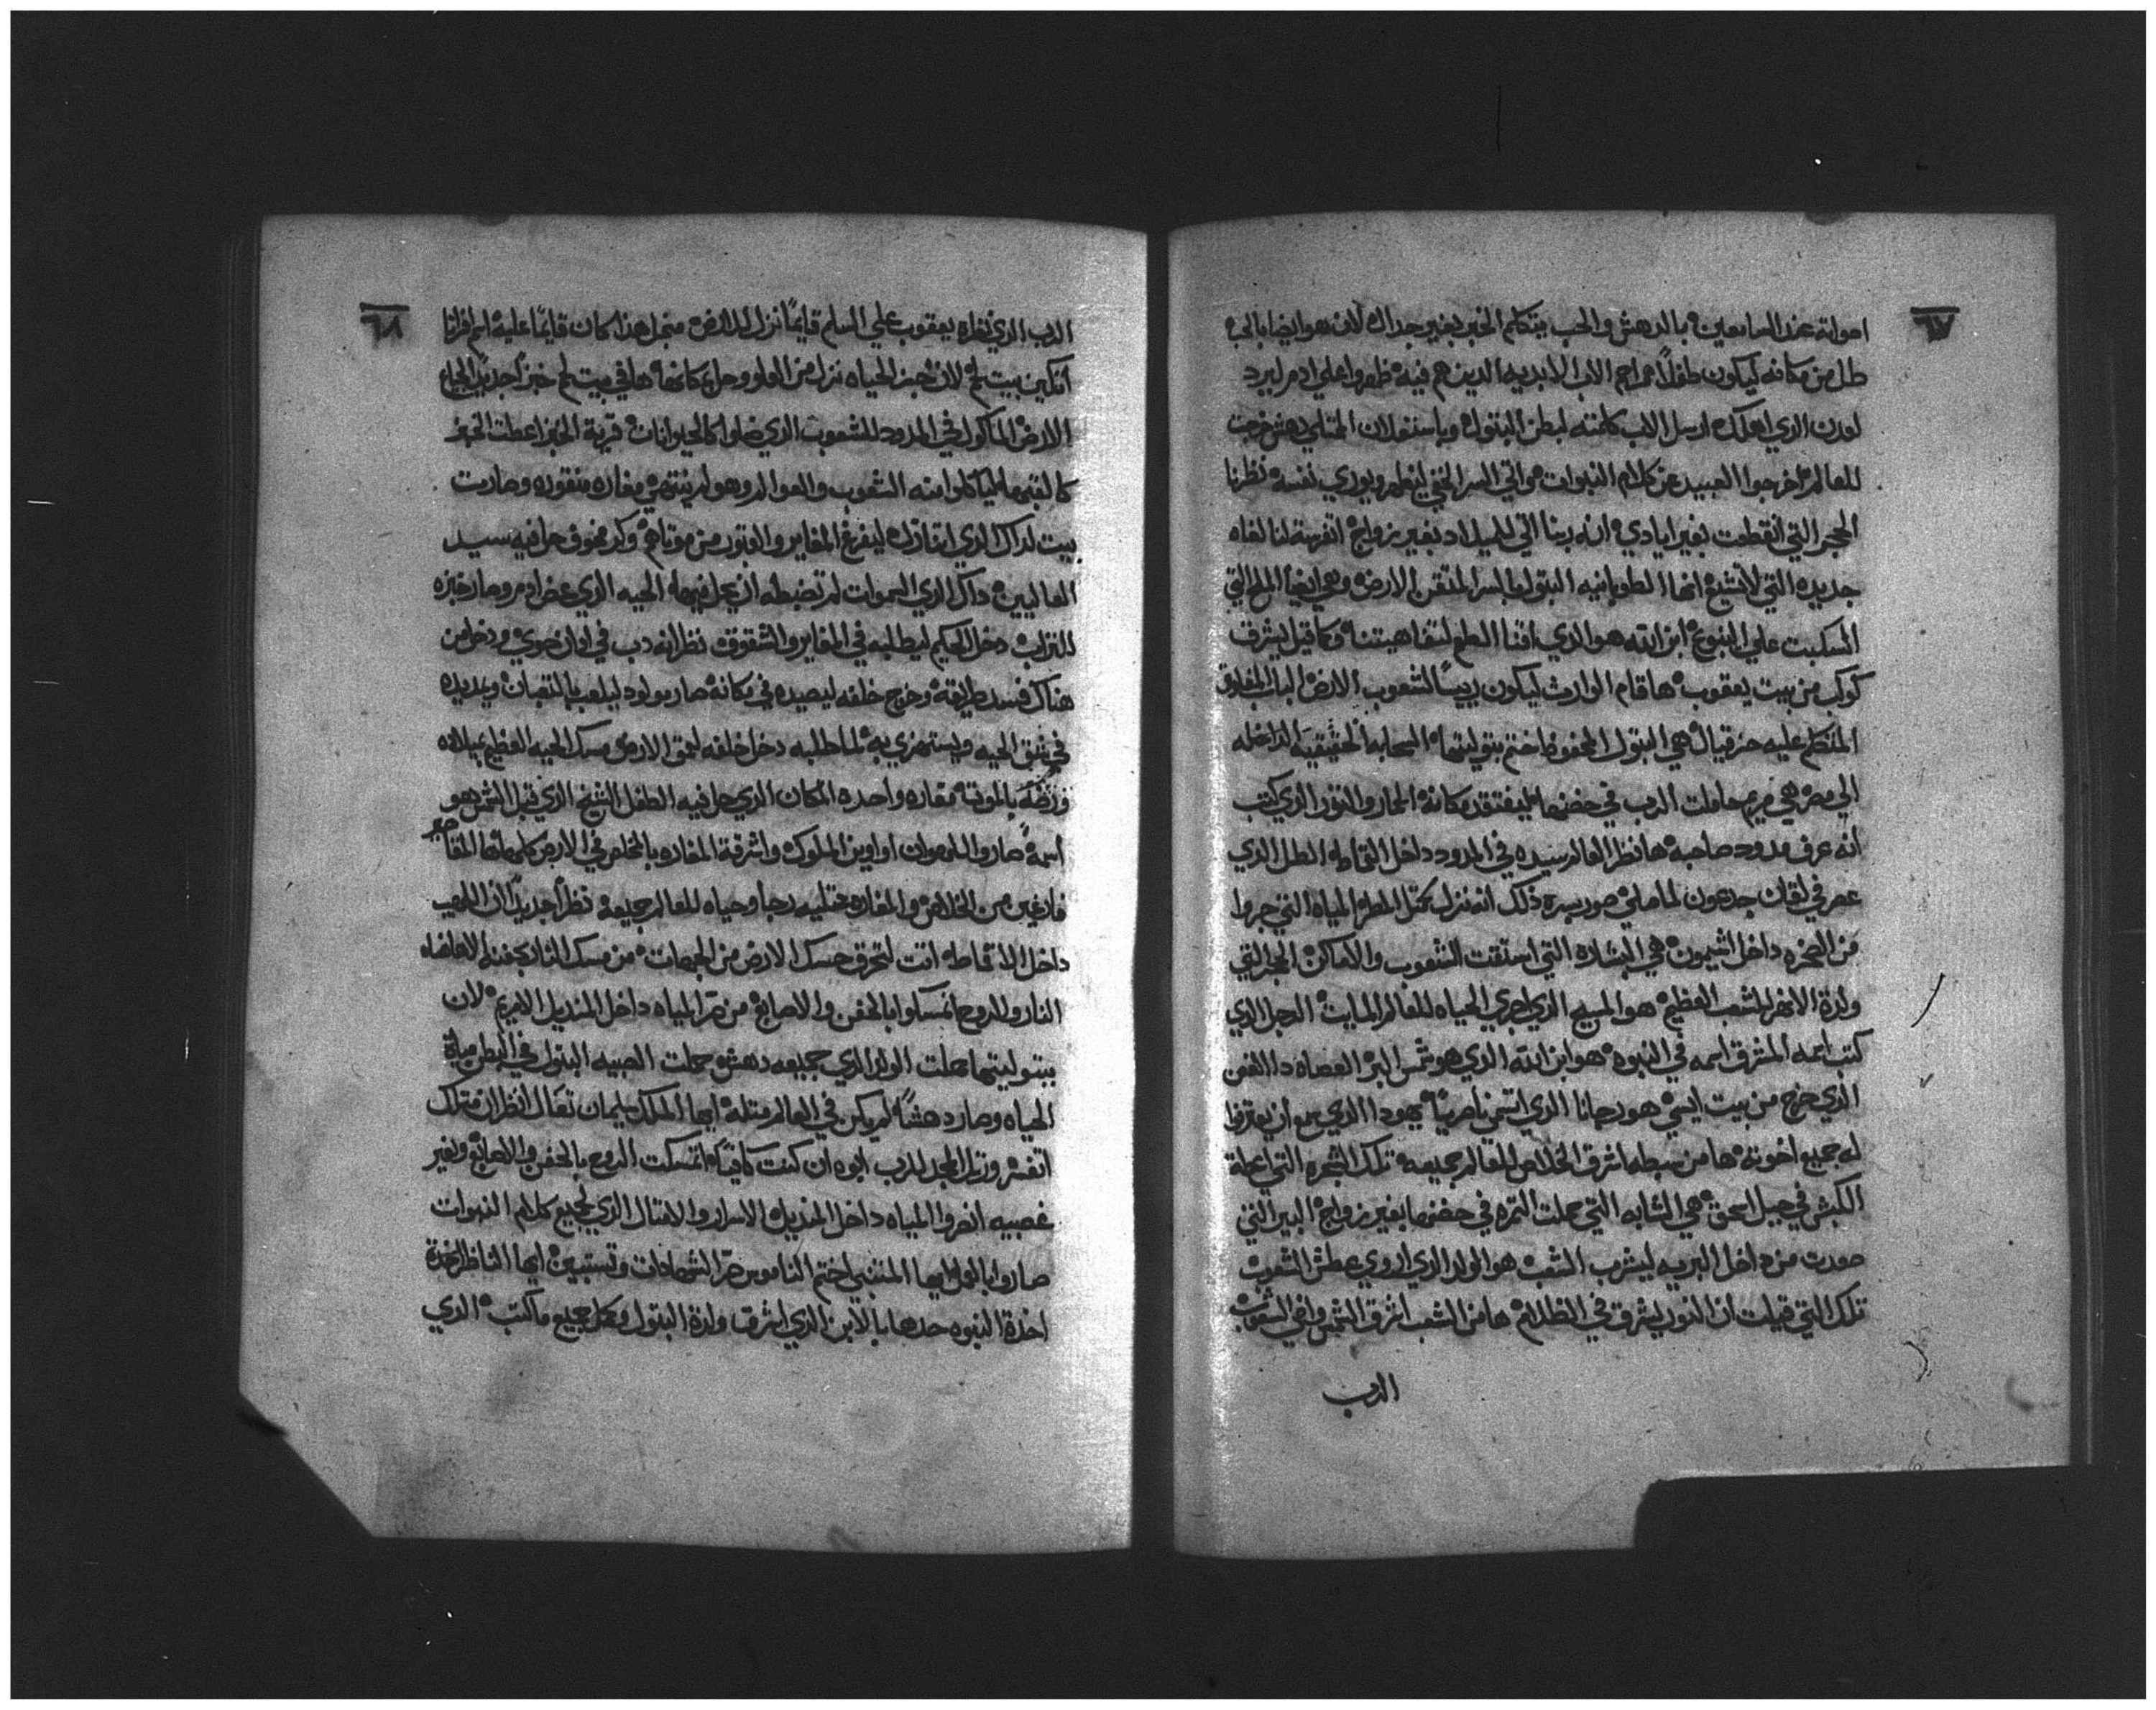 ٦٧
اصواته عند السامعين بالدهش والحب يتكلم الخبر بغير جدال لان هو ايضا بالحب
طل من مكانه ليكون طفلاً مراحم الاب الابديه الدين هم فيه ظهروا علي ادم ليرد
لعدن الدي اهلك ارسل الاب كلمته لبطن البتول وباستعلان الممتلي دهش خرجت
للعالم اخرجوا العبيد عن كلام النبوات واتي السر الخفي ليظهر ويوري نفسه نظرنا
الحجر التي انقطعت بغير ايادي انه ربنا اتي للميلاد بغير زواج لنا لغاه
جديده التي انها الطوبانيه البتول المتقن الارض وهي ايضا الملح التي
انسكبت علي الينبوع ابن الله هو الدي الطعم لتفاهيتنا وكما قيل يشرق
كوكب من بيت يعقوب ها قام الوارث ليكون رييساً لشعوب الارض الباب المغلق
المتكلم عليه حزقيال هي البتول المحفوظ ختم بتوليتها السحابه الحقيقيه الداخله
الي مصر هي مريم حاملت الرب في حضنها ليفتقد مكانه الحمار والتور الدي كتب
انه عرف مدود صاحبه ها نظر العالم سيده في المدود داخل القماط الطل الدي
عصر في لقان جدعون لما صلي صور سره دلك انه نزل بمتل المطر المياه التي جروا
من الصخره داخل الشيمون هي البشاره التي استقت الشعوب والاماكن الحجر التي
ولدة الانهر لشعب العظيم هو المسيح الدي اجري الحياه للعالم المايت الرجل الدي
كتب اسمه المشرق اسمه في النبوه هو ابن الله الدي هو شمس البر العصاه دا الغصن
الدي خرج من بيت ايسي هو رجانا الدي اتسمي ناصرياً يهودا الدي سمع ان يعترفوا
له جميع اخوته ها من سبطه اشرق الخلاص للعالم جميعه تلك الشجره التي اعطة
الكبش في جبل اسحق هي الشابه التي حملت التمره في حضنها بغير زواج البير التي
صعدت من داخل البريه ليشرب الشعب هو الولد الدي اروي عطش الشعوب
تلك التي قيلت ان النور يشرق في الظلام ها من الشعب اشرق الشمس وفي الشعوب
الرب
٦٨
الرب الدي نظره يعقوب علي السلم قايماً نزل للارض منجل هدا كان قايماً عليه اسم افراتا
انكين بيت لحم لان خبز الحياه نزل من العلو وحل بها في بيت لحم خبز جديد لجياع
الارض الماكول في المدود للشعوب الدي ضلوا كالحيوانات قرية الخبز اعطت الخبز
كالقيمه لياكلوا منه الشعوب والعوالم وهو لم ينتهي مغاره منقوره وصارت
بيت لداك الدي ليفرغ المغاير والقبور من موتاهم وكر مخوف حل فيه سيد
العاليين داك الدي السموات لم تضبطه ان يحل فيها الحيه الدي عض ادم وصار خبزه
للتراب دخل الحكيم ليطلبه في المغاير والشقوق نظر انه دب في ادان حوي ودخل من
هناك فسد طريقه وخرج خلفه ليصيده في مكانه صار مولود ليلعب بالتعبان ويمد يده
في نقب الحيه ويستهزي به لما طلبه دخل خلفه لعمق الارض مسك الحيه العظيم بميلاده
ورضه بالموت مغاره واحده المكان الدي حل فيه الطفل الشيخ الدي قبل الشمس هو
اسمه صاروا اللصوص اواوين الملوك واشرقة المغاره بالمخلص في الارض كلها المقابر
فارغين من الخلاص والمغاره ممتليه رجا وحياه للعالم جميعه نظراً جديداً ان اللهيب
داخل الاقماط اتت لتحرق حسك الارض من الجهات من مسك النار بحفنه الا
النار والروح اتمسكوا بالحفن والاصابع من صر المياه داخل المنديل الا مريم لان
ببتوليتها حملت الولد الدي جميعه دهش حملت الصبيه البتول في البطن مياة
الحياه وصار دهشاً لم يكن في العالم متله ايها الملك سليمان تعال انظر ان متلك
اتفسر ورتل المجد للرب ابوه ان كنت كافياً اتمسكت الروح بالحفن والاصابع وبغير
غصبيه انصروا المياه داخل المنديل الاسرار والامتال الدي لجميع كلام النبوات
صاروا ايها المتنبي اختم الناموس صر الشهادات وتستبين ايها الناظر
اخدة النبوه حدها بالابن الدي اشرق ولدة البتول وكمل جميع ماكتب الدي